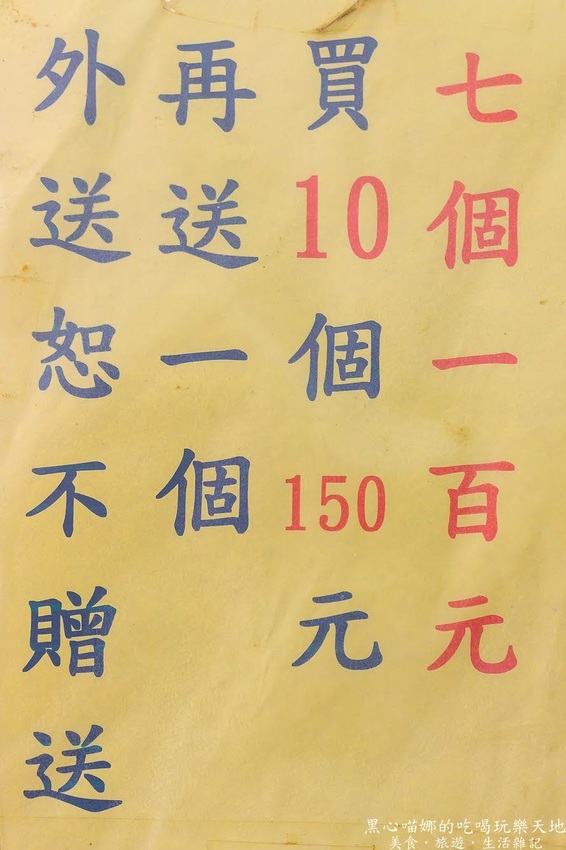 七個一百元
買10個150元
再送一個
外送恕不贈送
黑心喵娜的吃喝玩樂天地
美食·旅遊·生活雜記